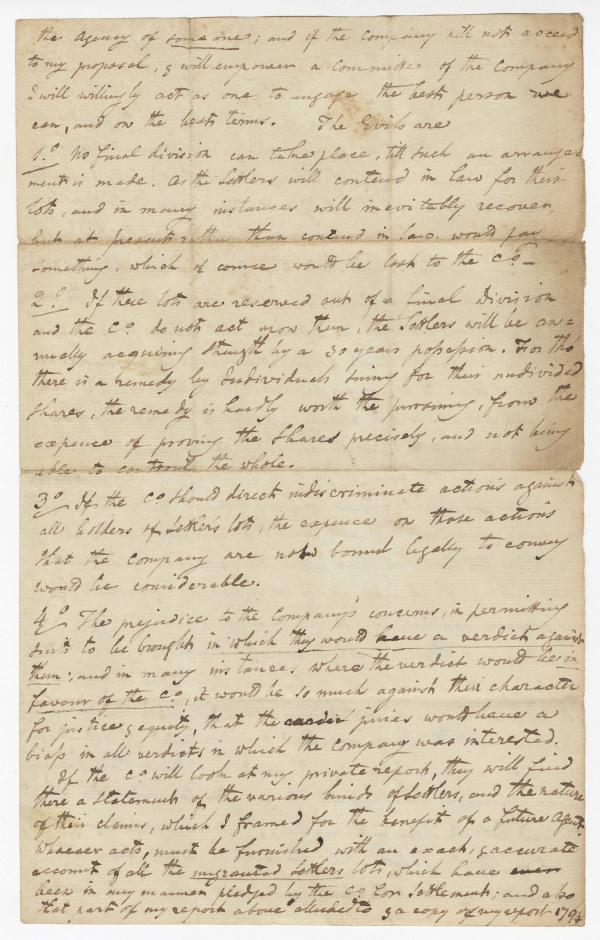 the Agency of some one; and if the Company will not acceed
to my proposal, & will empower a Committee of the Company
I will willingly act as one to engage the best person we
can, and on the best terms. The Evils are
1.o No final division can take place, till such an arrange-
ment is made. As the Settlers will contend in law for their
lots, and in many instances will inevitably recover,
but at present rather than contend in law. would pay
something, which of course would be lost to the Co. —
2.o If these lots are reserved out of a final Division
and the Co. do not act upon them, the Settlers will be an=
nually acquiring strength by a 30 years possession. For tho'
there is a remedy by Individuals suing for their undivided
shares, the remedy is hardly worth the pursuing, from the
expence of proving the Shares precisely, and not being
able to controul the whole.
3o If the Co. should direct indiscriminate actions against
all holders of Settler's lots, the expence on those actions
that the Company are not bound legally to convey
would be considerable.
4o The prejudice to the Company's concerns, in permitting
suits to be brought in which they would have a verdict against
them; and in many instances where the verdict would be in
favour of the Co., it would be so much against their character
for justice & equity, that the juries would have a
biass in all verdicts in which the Company was interested.
If the Co. will look at my private report, they will find
there a statement of the various kinds of Settlers, and the nature
of their claims, which I framed for the benefit of a future Agent.
Whoever acts, must be furnished with an exact, & accurate
account of all the ungranted Settlers lots, which have
been in any manner pledged by the Co. for Settlement; and also
that part of my report above alluded to & a copy of my report 1794